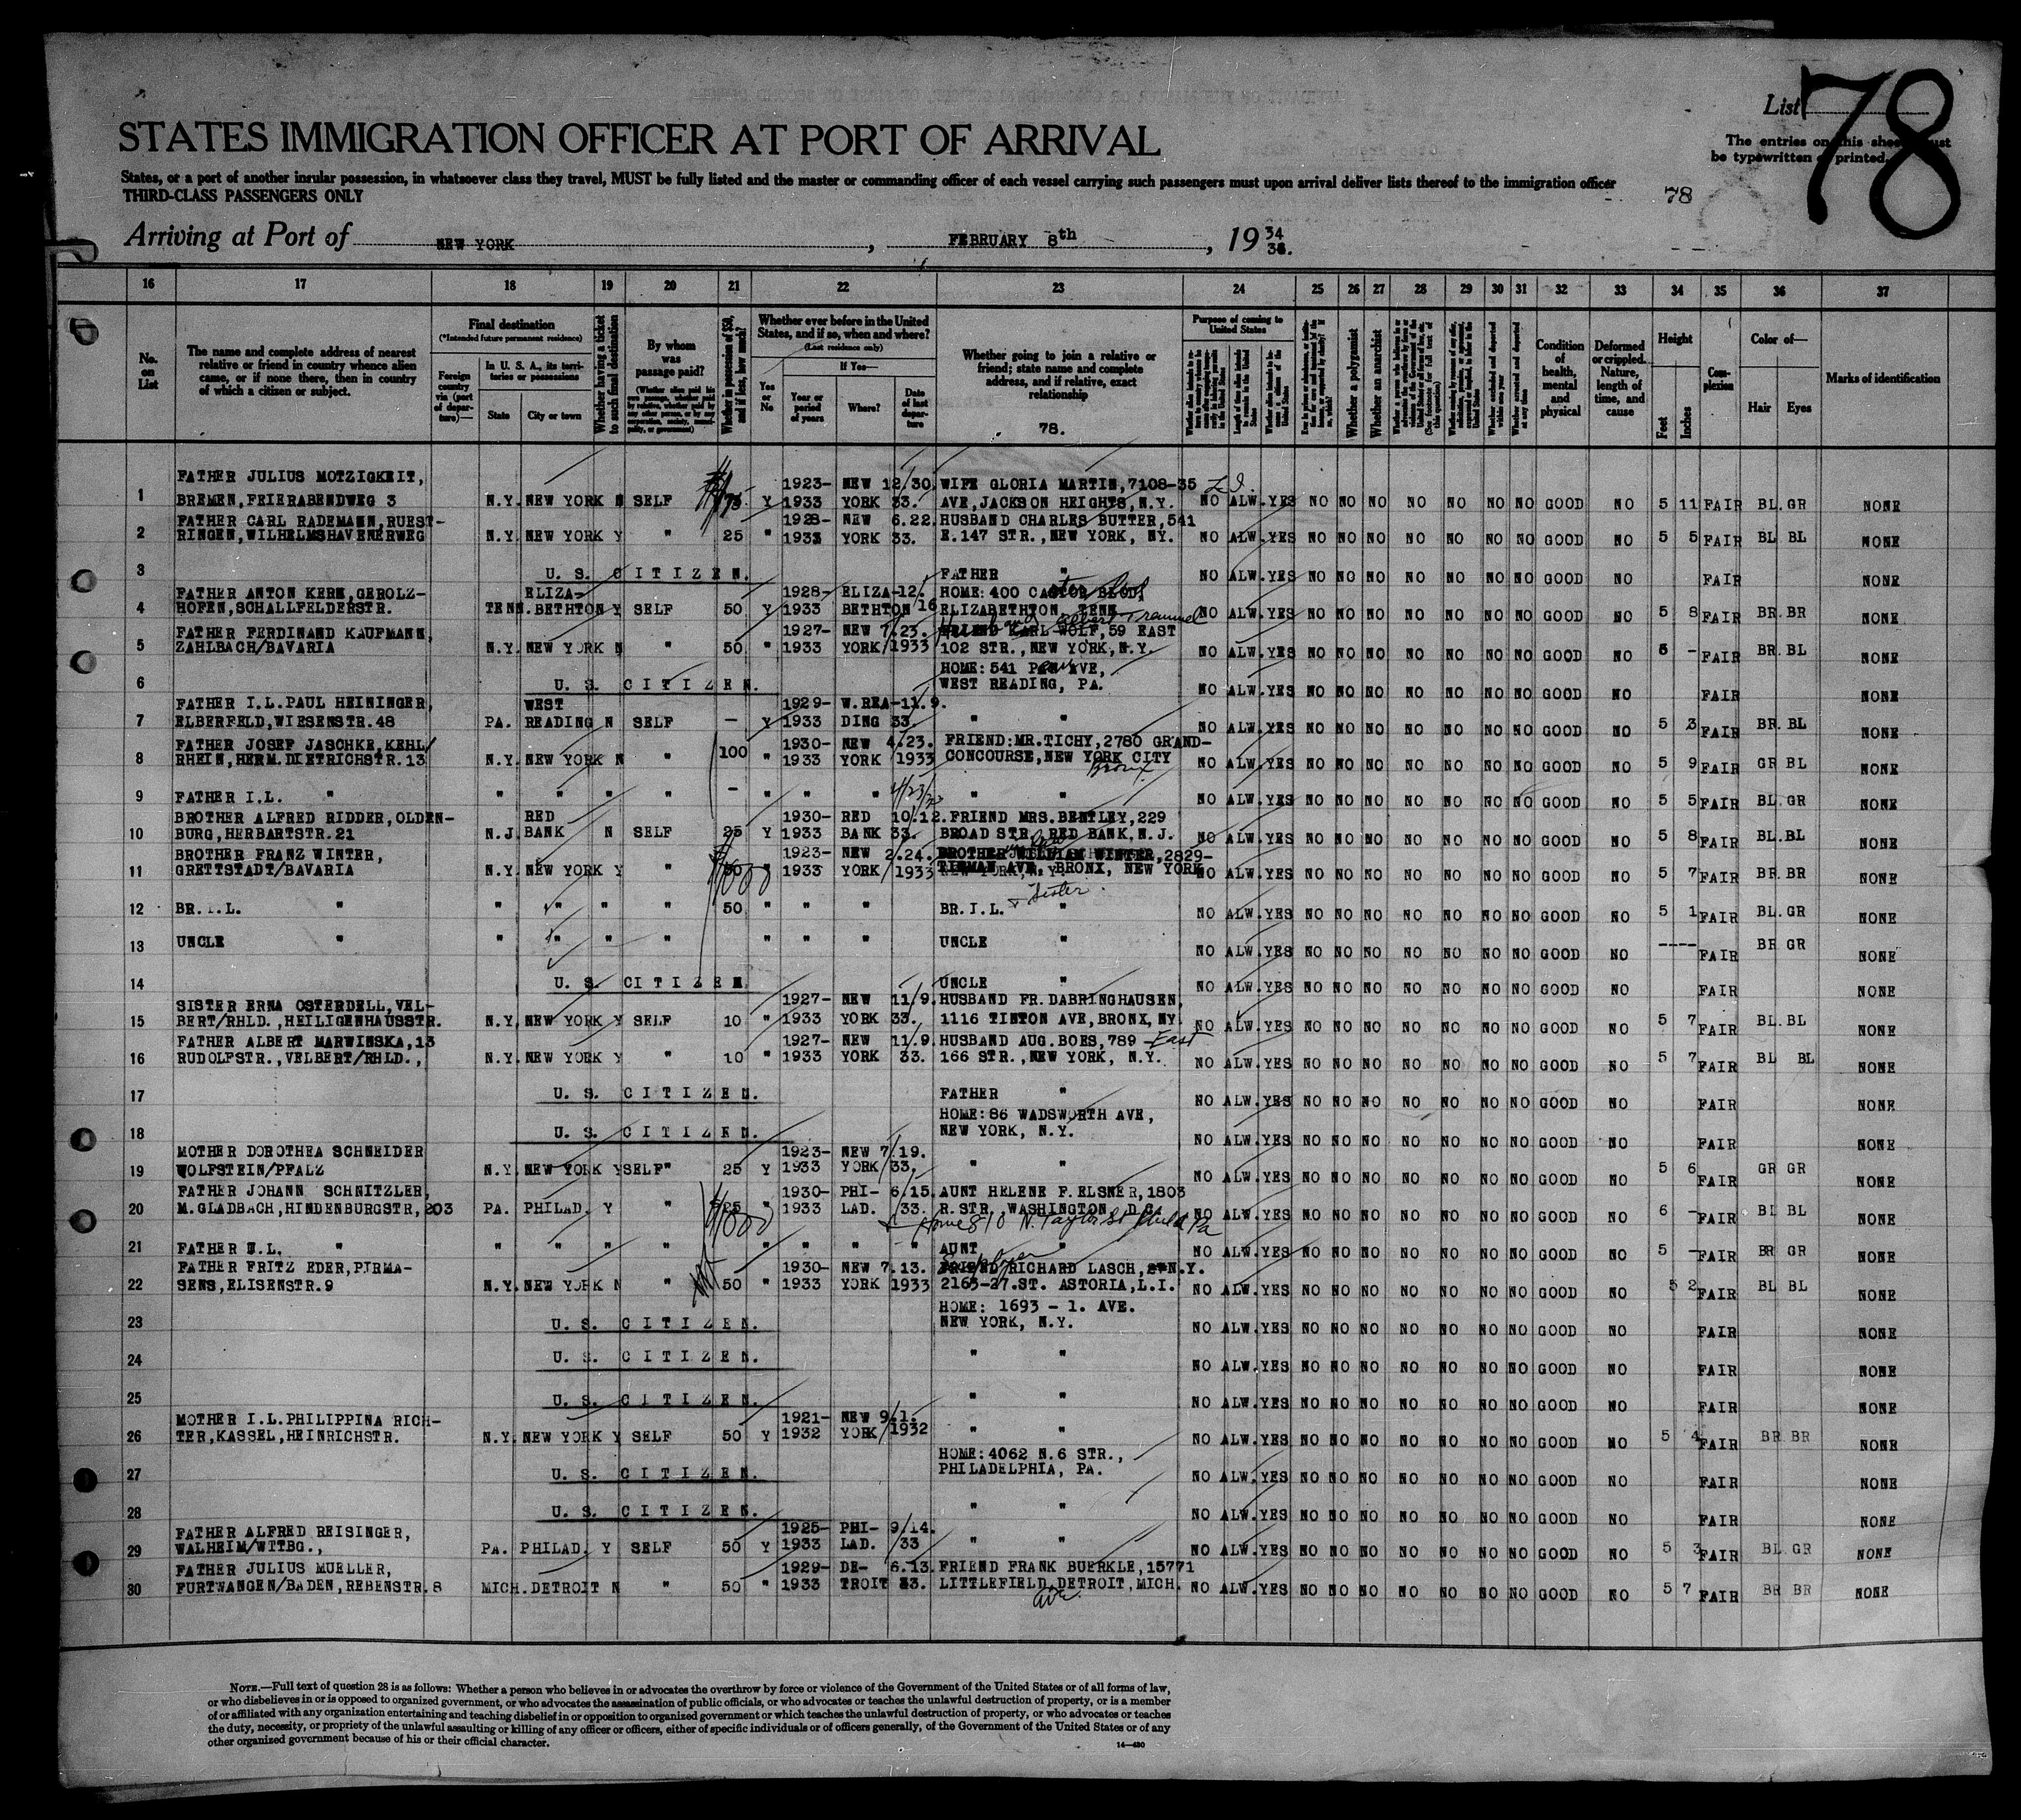 List 78
The entries on this sheet must
be typewritten or printed.
STATES IMMIGRATION OFFICER AT PORT OF ARRIVAL
States, or a port of another insular possession, in whatsoever class they travel, MUST be fully listed and the master or commanding officer of each vessel carrying such passengers must upon arrival deliver lists thereof to the immigration officer
THIRD-CLASS PASSENGERS ONLY
78
Arriving at Port of NEW YORK, FEBRUARY 8th, 19 34
16 17 18 19 20 21 22 23 24 25 26 27 28 29 30 31 32 33 34 35 36 37
No. on List
The name and complete address of nearest relative or friend in country whence alien came, or if none there, then in country of which a citizen or subject.
Final destination
(*Intended future permanent residence)
Foreign country via (port of departure)—
In U. S. A., its territories or possessions
State
City or town
Whether having a ticket to such final destination
By whom was passage paid?
Whether in possession of $50, and if less, how much?
Whether ever before in the United States, and if so, when and where?
(Last residence only)
Yes or No
If Yes—
Year or period of years
Where?
Date of last departure
Whether going to join a relative or friend; state name and complete address, and if relative, exact relationship
78.
Purpose of coming to United States
Whether a polygamist
Whether an anarchist
Condition of health, mental and physical
Deformed or crippled. Nature, length of time, and cause
Height
Feet
Inches
Complexion
Color of—
Hair
Eyes
Marks of identification
FATHER JULIUS MOTZIGKEIT, 1923- NEW 12/30. WIFE GLORIA MARTIN,7108-35 L.I.
1 BREMEN,FEIERABENDWEG 3 N.Y. NEW YORK N SELF 75 Y 1933 YORK 33. AVE,JACKSON HEIGHTS,N.Y. NO ALW. YES NO NO NO NO NO NO NO GOOD NO 5 11 FAIR BL. GR NONE
FATHER CARL RADEMANN,RUEST- 1928- NEW 6.22. HUSBAND CHARLES BUTTER,541
2 RINGEN,WILHELMSHAVENERWEG N.Y. NEW YORK Y " 25 " 1933 YORK 33. E.147 STR.,NEW YORK, NY. NO ALW. YES NO NO NO NO NO NO NO GOOD NO 5 5 FAIR BL BL NONE
3 U. S. CITIZEN. FATHER " NO ALW. YES NO NO NO NO NO NO NO GOOD NO FAIR NONE
FATHER ANTON KERN,GEROLZ- ELIZA- 1928- ELIZA- 12. HOME: 400
4 HOFEN,SCHALLFELDERSTR. TENN. BETHTON Y SELF 50 Y 1933 BETHTON 16 ELIZABETHTON TENN NO ALW. YES NO NO NO NO NO NO NO GOOD NO 5 8 FAIR BR. BR NONE
FATHER FERDINAND KAUFMANN, 1927- NEW 7.23. FRIEND KARL WOLF,59 EAST
5 ZAHLBACH/BAVARIA N.Y. NEW YORK N " 50 " 1933 YORK 1933 102 STR.,NEW YORK,N.Y. NO ALW. YES NO NO NO NO NO NO NO GOOD NO 5 - FAIR BR. BL NONE
HOME: 541 PENN AVE,
6 U. S. CITIZEN. WEST READING, PA. NO ALW. YES NO NO NO NO NO NO NO GOOD NO FAIR NONE
FATHER I.L.PAUL HEININGER, WEST 1929- W.REA- 11.9.
7 ELBERFELD,WIESENSTR.48 PA. READING N SELF — Y 1933 DING 33. " " NO ALW. YES NO NO NO NO NO NO NO GOOD NO 5 3 FAIR BR. BL NONE
FATHER JOSEF JASCHKE,KEHL/ 1930- NEW 4.23. FRIEND:MR.TICHY,2780 GRAND-
8 RHEIN,HERM.DIETRICHSTR.13 N.Y. NEW YORK N " 100 " 1933 YORK 1933 CONCOURSE,NEW YORK CITY Bronx NO ALW. YES NO NO NO NO NO NO NO GOOD NO 5 9 FAIR GR BL NONE
9 FATHER I.L. " " " " " — " " " 4/23/33 " " NO ALW. YES NO NO NO NO NO NO NO GOOD NO 5 5 FAIR BL. GR NONE
BROTHER ALFRED RIDDER,OLDEN- RED 1930- RED 10.12. FRIEND MRS.BENTLEY,229
10 BURG,HERBARTSTR.21 N.J. BANK N SELF 25 Y 1933 BANK 33. BROAD STR. RED BANK.N.J. NO ALW. YES NO NO NO NO NO NO NO GOOD NO 5 8 FAIR BL. BL NONE
BROTHER FRANZ WINTER, 1923- NEW 2.24. BROTHER WILLIAM WINTER,2829-
11 GRETTSTADT/BAVARIA N.Y. NEW YORK Y " $1000 " 1933 YORK 1933 AVE, BRONX, NEW YORK NO ALW. YES NO NO NO NO NO NO NO GOOD NO 5 7 FAIR BR. BR NONE
12 BR.I.L. " " " " " 50 " " " BR.I.L. Sister " NO ALW. YES NO NO NO NO NO NO NO GOOD NO 5 1 FAIR BL. GR NONE
13 UNCLE " " " " " " " " UNCLE " NO ALW. YES NO NO NO NO NO NO NO GOOD NO ---- FAIR BR GR NONE
14 U. S. CITIZEN UNCLE " NO ALW. YES NO NO NO NO NO NO NO GOOD NO FAIR NONE
SISTER ERNA OSTERDELL,VEL- 1927- NEW 11/9. HUSBAND FR.DABRINGHAUSEN,
15 BERT/RHLD.,HEILIGENHAUSSTR. N.Y. NEW YORK Y SELF 10 " 1933 YORK 33. 1116 TINTON AVE,BRONX,NY. NO ALW. YES NO NO NO NO NO NO NO GOOD NO 5 7 FAIR BL. BL NONE
FATHER ALBERT MARWINSKA,13 1927- NEW 11.9. HUSBAND AUG.BOES,789 East
16 RUDOLFSTR.,VELBERT/RHLD., N.Y. NEW YORK Y " 10 " 1933 YORK 33. 166 STR.,NEW YORK, N.Y. NO ALW. YES NO NO NO NO NO NO NO GOOD NO 5 7 FAIR BL BL NONE
17 U. S. CITIZEN. FATHER " NO ALW. YES NO NO NO NO NO NO NO GOOD NO FAIR NONE
HOME:86 WADSWORTH AVE,
18 U. S. CITIZEN. NEW YORK, N.Y. NO ALW. YES NO NO NO NO NO NO NO GOOD NO FAIR NONE
MOTHER DOROTHEA SCHNEIDER 1923- NEW 7/19.
19 WOLFSTEIN/PFALZ N.Y. NEW YORK Y SELF" 25 Y 1933 YORK 33. " " NO ALW. YES NO NO NO NO NO NO NO GOOD NO 5 6 FAIR GR GR NONE
FATHER JOHANN SCHNITZLER, 1930- PHI- 6.15. AUNT HELENE F.ELSNER,1803
20 M.GLADBACH,HINDENBURGSTR,203 PA. PHILAD. Y " $1000 " 1933 LAD. 33. R.STR.,WASHINGTON, D.C. NO ALW. YES NO NO NO NO NO NO NO GOOD NO 6 - FAIR BL BL NONE
Home 810 N. Taylor St Phila Pa
21 FATHER I.L. " " " " " " " " " AUNT " NO ALW. YES NO NO NO NO NO NO NO GOOD NO 5 - FAIR BR GR NONE
FATHER FRITZ EDER,PIRMA- 1930- NEW 7.13. FRIEND RICHARD LASCH, N.Y.
22 SENS,ELISENSTR.9 N.Y. NEW YORK N " 50 " 1933 YORK 1933 2163-27.ST. ASTORIA,L.I. NO ALW. YES NO NO NO NO NO NO NO GOOD NO 5 2 FAIR BL BL NONE
HOME: 1693 - 1. AVE.
23 U. S. CITIZEN. NEW YORK, N.Y. NO ALW. YES NO NO NO NO NO NO NO GOOD NO FAIR NONE
24 U. S. CITIZEN. " " NO ALW. YES NO NO NO NO NO NO NO GOOD NO FAIR NONE
25 U. S. CITIZEN. " " NO ALW. YES NO NO NO NO NO NO NO GOOD NO FAIR NONE
MOTHER I.L.PHILIPPINA RICH- 1921- NEW 9.1.
26 TER,KASSEL,HEINRICHSTR. N.Y. NEW YORK Y SELF 50 Y 1932 YORK 1932 " " NO ALW. YES NO NO NO NO NO NO NO GOOD NO 5 4 FAIR BR BR NONE
HOME:4062 N.6 STR.,
27 U. S. CITIZEN. PHILADELPHIA, PA. NO ALW. YES NO NO NO NO NO NO NO GOOD NO FAIR NONE
28 U. S. CITIZEN. " " NO ALW. YES NO NO NO NO NO NO NO GOOD NO FAIR NONE
FATHER ALFRED REISINGER, 1925- PHI- 9/14.
29 WALHEIM/WTTBG., PA. PHILAD. Y SELF 50 Y 1933 LAD. 33 " " NO ALW. YES NO NO NO NO NO NO NO GOOD NO 5 3 FAIR BL GR NONE
FATHER JULIUS MUELLER, 1929- DE- 6.13. FRIEND FRANK BUERKLE,15771
30 FURTWANGEN/BADEN,REBENSTR.8 MICH. DETROIT N " 50 " 1933 TROIT 33. LITTLEFIELD DETROIT,MICH. NO ALW. YES NO NO NO NO NO NO NO GOOD NO 5 7 FAIR BR BR NONE
ave.
NOTE.—Full text of question 28 is as follows: Whether a person who believes in or advocates the overthrow by force or violence of the Government of the United States or of all forms of law,
or who disbelieves in or is opposed to organized government, or who advocates the assassination of public officials, or who advocates or teaches the unlawful destruction of property, or is a member
of or affiliated with any organization entertaining and teaching disbelief in or opposition to organized government or which teaches the unlawful destruction of property, or who advocates or teaches
the duty, necessity, or propriety of the unlawful assaulting or killing of any officer or officers, either of specific individuals or of officers generally, of the Government of the United States or of any
other organized government because of his or their official character.
14—430